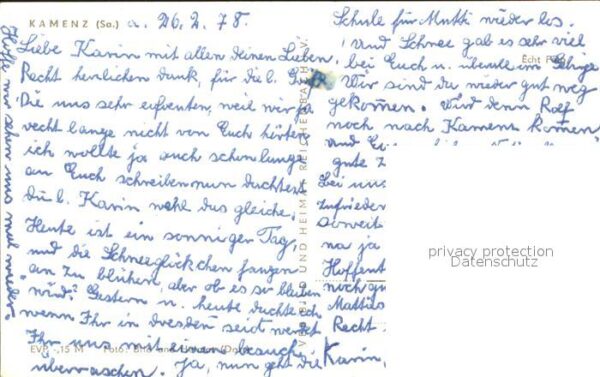 KAMENZ (Sa.) a. 26.2.78.
Liebe Karin mit allen deinen Lieben,
Recht herzlichen dank, für die l. Grüße
Die uns sehr erfreuten, weil wir ja
recht lange nicht von Euch hörten
ich wollte ja auch schon lange
an Euch schreiben nun dachtest
du l. Karin wohl das gleiche.
Heute ist ein sonniger Tag,
und die Schneeglöckchen fangen
an zu blühen, aber ob es so bleiben
wird? Gestern u. heute dachte ich
wenn Ihr in dresden seid werdet
Ihr uns mit einen besuche
überraschen. Ja, nun geht die
Schule für Mutti wieder los.
Und Schnee gab es sehr viel
bei Euch u. überall im Gebirge
Wir sind da wieder gut weg
gekommen. Wird denn Ralf
noch nach Kamenz kommen
und
gute
bei uns
zufrieden
soweit
na ja
Hoffent
noch gu
Matthias
Recht
Karin,
Hoffe wir sehen uns mal wieder.
Echt
VERLAG BILD UND HEIMAT REICHENBACH I. V.
EVP -,15 M Foto:
privacy protection
Datenschutz